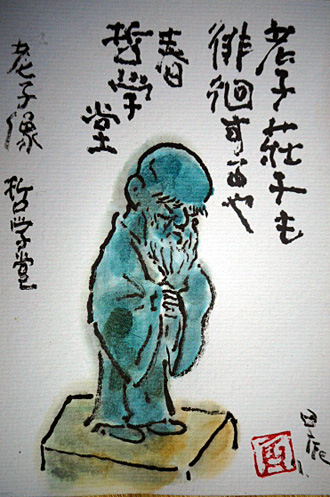 老子荘子も
徘徊するや
春
哲学堂
老子像 哲学堂